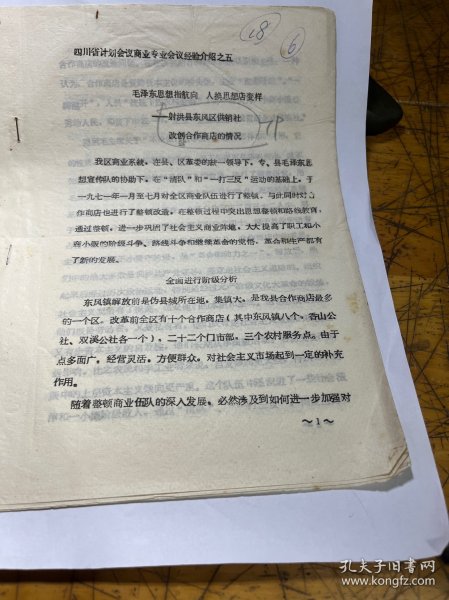 18
6
四川省计划会议商业专业会议经验介绍之五
毛泽东思想指航向 人换思想店变样
—射洪县东风区供销社
改创合作商店的情况
我区商业系统,在县、区革委的统一领导下,专、县毛泽东思
想宣传队的协助下,在“清队”和“一打三反”运动的基础上,于
一九七一年一月至七月对全区商业队伍进行了整顿,与此同时对合
作商店也进行了整顿改造。在整顿过程中突出思想整顿和路线教育,
通过整顿,进一步巩固了社会主义商业阵地,大大提高了职工和小
商小贩的阶级斗争、路线斗争和继续革命的觉悟,革命和生产都有
了新的发展。
全面进行阶级分析
东风镇解放前是伪县城所在地,集镇大,是我县合作商店最多
的一个区。改革前全区有十个合作商店(其中东风镇八个、香山公
社、双溪公社各一个),二十二个门市部,三个农村服务点。由于
点多面广,经营灵活,方便群众,对社会主义市场起到一定的补充
作用。
随着整顿商业伍队的深入发展,必然涉及到如何进一步加强对
~1~
孔夫子旧书网
www.kongfz.com